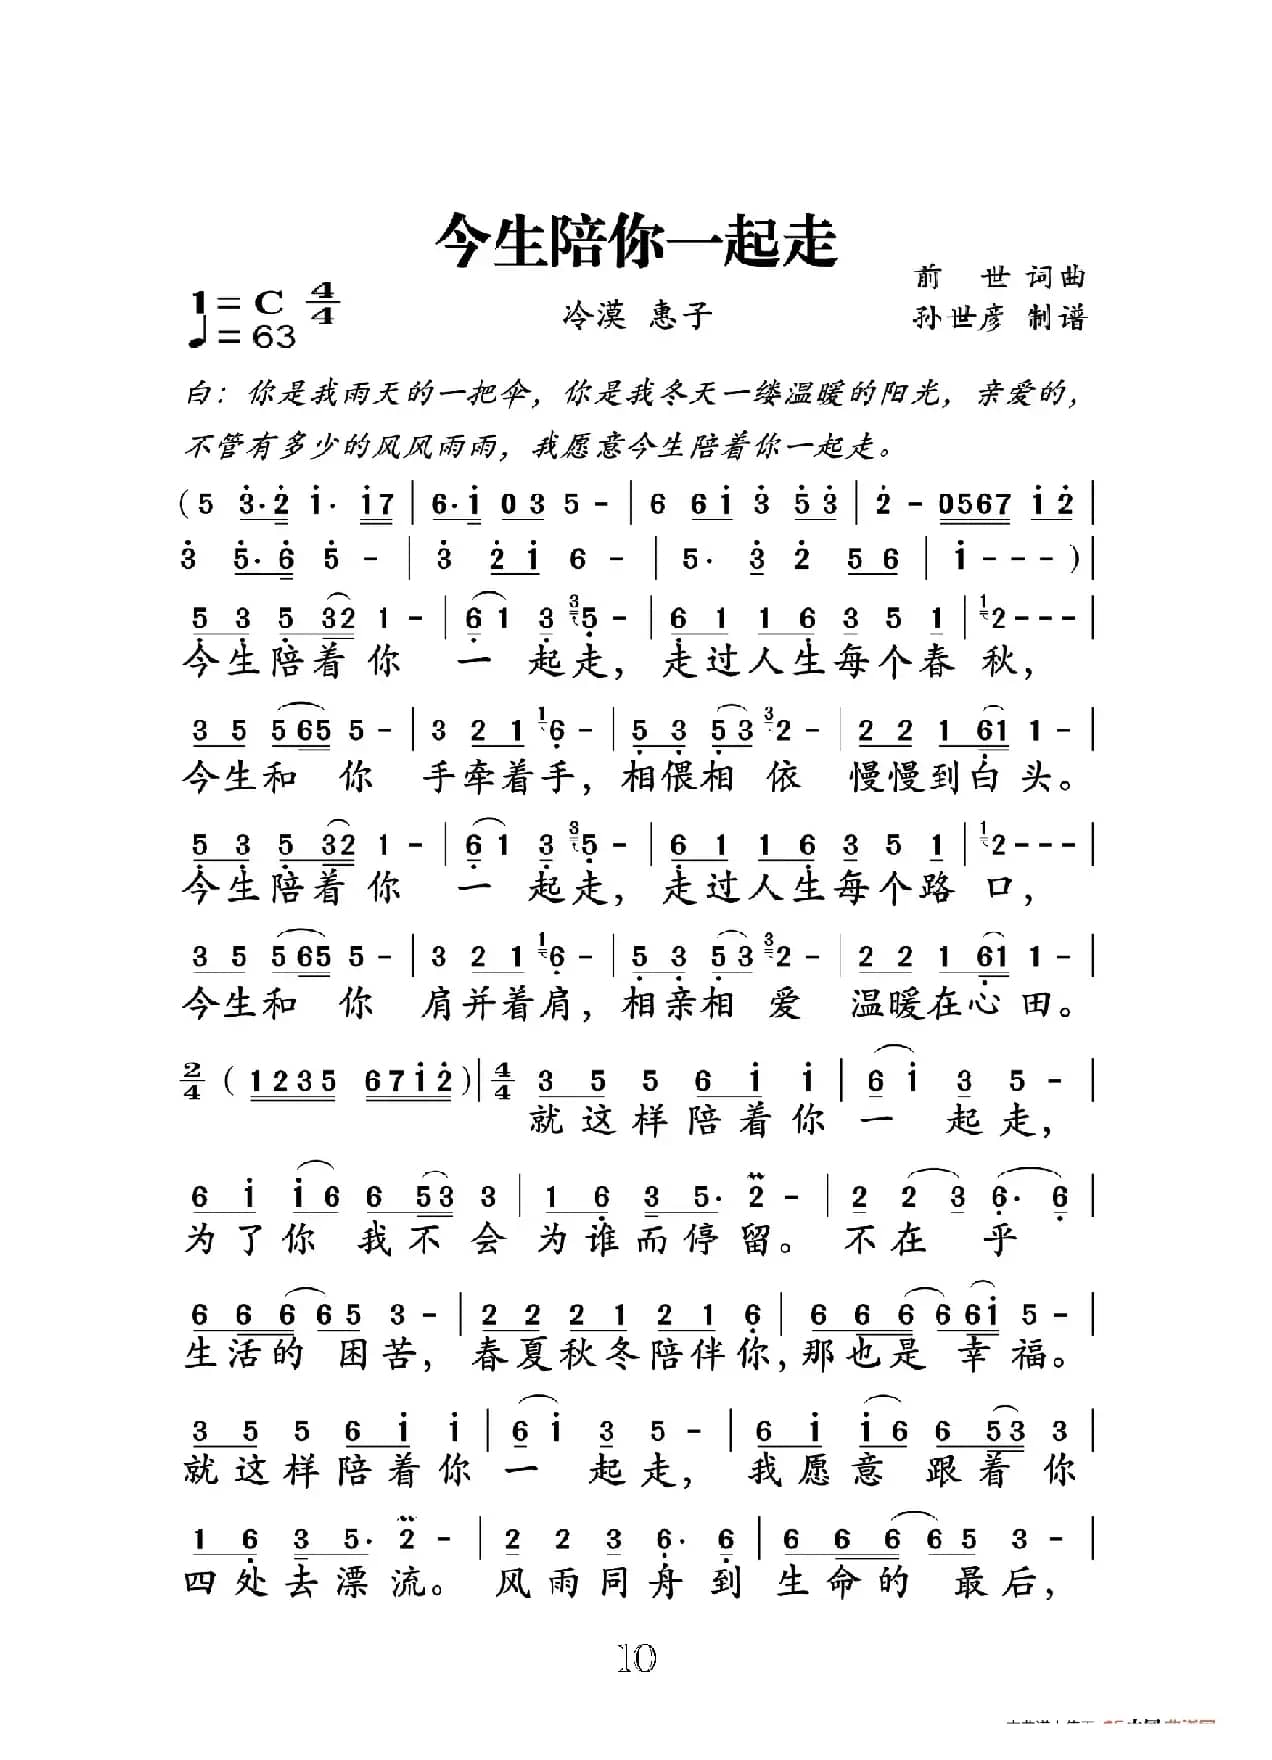 今生陪你一起走
前 世 词曲
1=C 4/4
冷漠 惠子
孙世彦 制谱
♩=63
白：你是我雨天的一把伞，你是我冬天一缕温暖的阳光，亲爱的，
不管有多少的风风雨雨，我愿意今生陪着你一起走。
(5 3·2 1· 17 | 6·1 03 5 - | 6 61 3 53 | 2 - 0567 12 |
3 5·6 5 - | 3 21 6 - | 5· 3 2 56 | 1 - - - ) |
5 3 5 32 1 - | 6 1 3 3 5 - | 6 1 1 6 3 5 1 | 1 2 - - - |
今生陪着你 一 起走，走过人生每个春 秋，
3 5 5 65 5 - | 3 2 1 1 6 - | 5 3 5 3 3 2 - | 2 2 1 61 1 - |
今生和 你 手牵着手，相偎相 依 慢慢到白头。
5 3 5 32 1 - | 6 1 3 3 5 - | 6 1 1 6 3 5 1 | 1 2 - - - |
今生陪着你 一 起走，走过人生每个路 口，
3 5 5 65 5 - | 3 2 1 1 6 - | 5 3 5 3 3 2 - | 2 2 1 61 1 - |
今生和 你 肩并着肩，相亲相 爱 温暖在心田。
2/4 (1235 6712) | 4/4 3 5 5 6 1 1 | 6 1 3 5 - |
就这样陪着你一 起走，
6 1 1 6 6 53 3 | 1 6 3 5· 2 - | 2 2 3 6· 6 |
为了你 我不会为谁而停留。不在 乎
6 6 6 6 5 3 - | 2 2 2 1 2 1 6 | 6 6 6 6 61 5 - |
生活的 困苦，春夏秋冬陪伴你，那也是 幸福。
3 5 5 6 1 1 | 6 1 3 5 - | 6 1 1 6 6 53 3 |
就这样陪着你一 起走，我愿意 跟着你
1 6 3 5· 2 - | 2 2 3 6· 6 | 6 6 6 6 5 3 - |
四处去漂流。风雨同舟到生命的 最后，
10